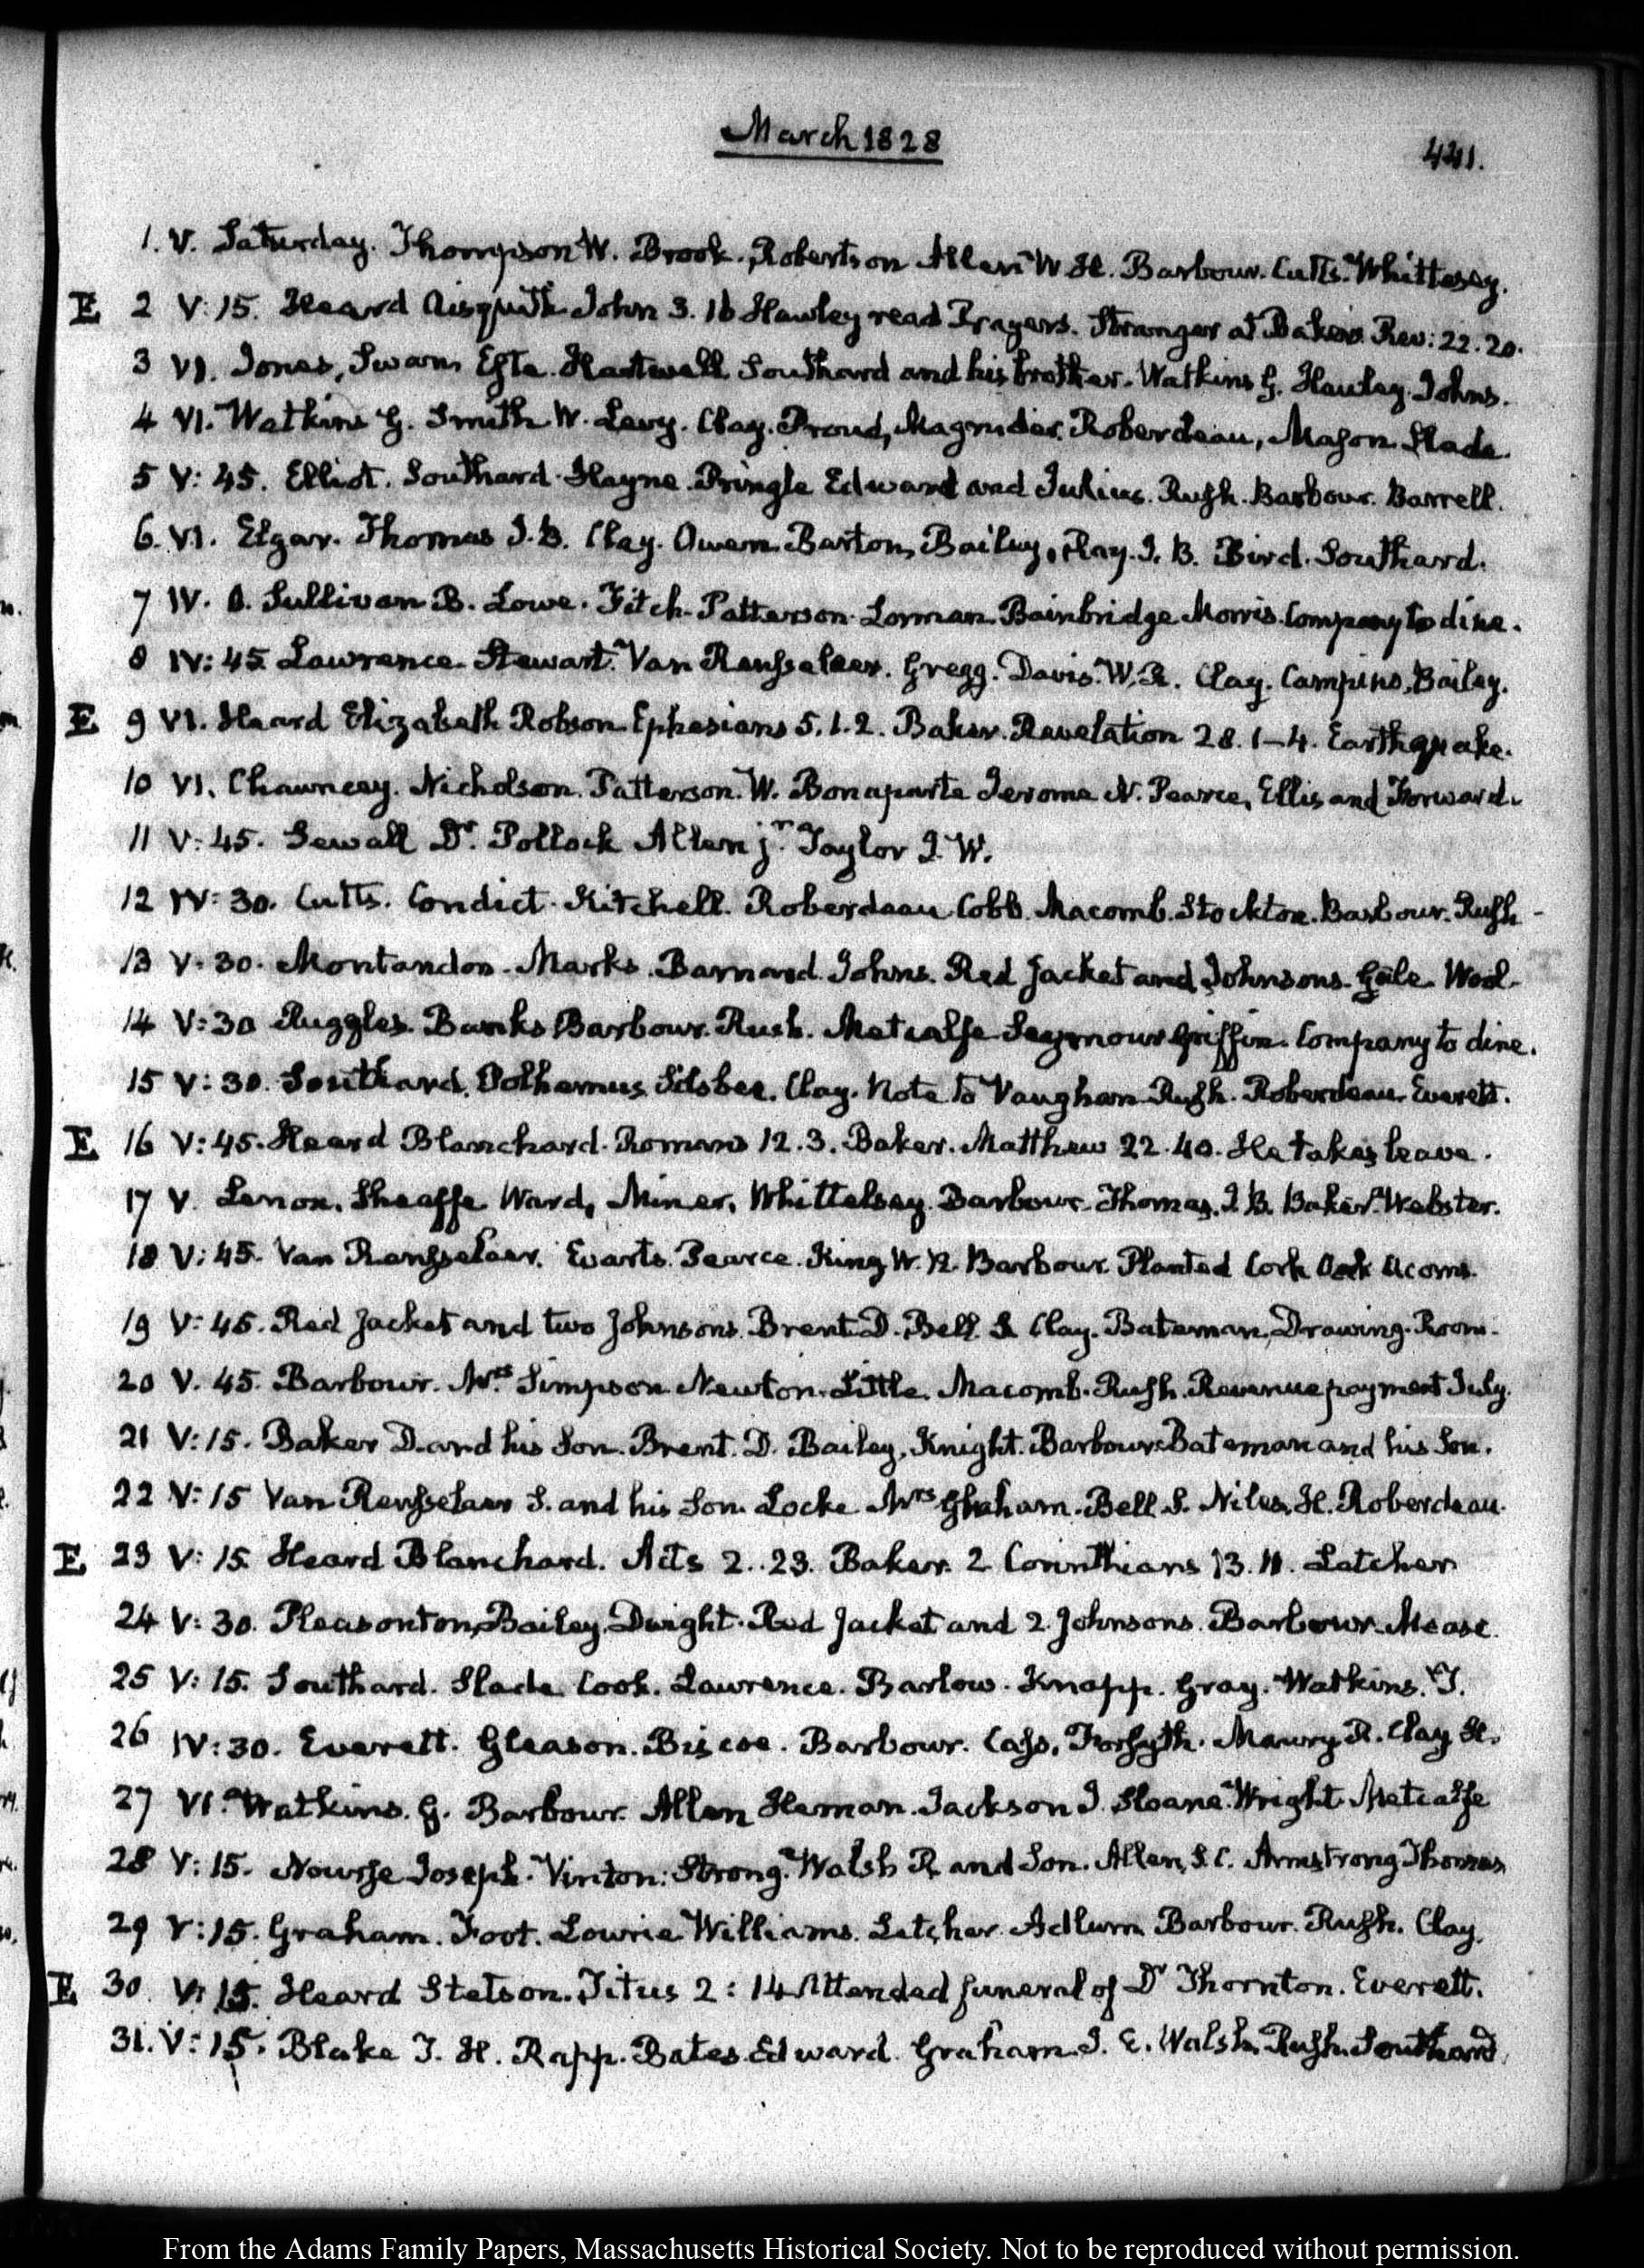 March 1828
441.
1. V. Saturday. Thompson W. Brook. Robertson Allen W. H. Barbour. Cutts. Whittlesey.
E 2 V:15. Heard Aisquith John 3. 16 Hawley read Prayers. Stranger at Bakers. Rev: 22. 20.
3 VI. Jones, Swann, Este. Hartwell. Southard and his brother. Watkins G. Hawley. Johns.
4 VI. Watkins G. Smith W. Levy. Clay. Proud, Magruder. Roberdeau, Mason. Slade.
5 V:45. Elliot. Southard. Hayne. Pringle Edward and Julius. Rush. Barbour. Barrell.
6. VI. Elgar. Thomas J. B. Clay. Owen. Barton, Bailey, Ray. J. B. Bird. Southard.
7 IV. O. Sullivan B. Lowe. Fitch. Patterson. Lorman. Bainbridge Morris. Company to dine.
8 IV:45 Lawrence. Stewart. Van Rensselaer. Gregg. Davis. W. R. Clay. Campino, Bailey.
E 9 VI. Heard Elizabeth Robson Ephesians 5. 1. 2. Baker. Revelation 28. 1–4. Earthquake.
10 VI. Chauncey. Nicholson. Patterson. W. Bonaparte Jerome N. Pearce, Ellis and Forward.
11 V:45. Sewall Dr. Pollock Allen jr. Taylor J. W.
12 IV:30. Cutts. Condict. Kitchell. Roberdeau Cobb. Macomb. Stockton. Barbour. Rush
13 V.30. Montandon. Marks. Barnard. Johns. Red Jacket and Johnsons. Gale. Wool.
14 V:30 Ruggles. Banks Barbour. Rush. Metcalfe Seymour Griffin. Company to dine.
15 V:30. Southard. Polhemus, Silsbee. Clay. Note to Vaughan. Rush. Roberdeau. Everett.
E 16 V:45. Heard Blanchard. Romans 12. 3. Baker. Matthew 22. 40. He takes leave.
17 V. Lenox. Sheaffe Ward, Miner, Whittelsey. Barbour. Thomas. J. B. Baker. Webster.
18 V:45. Van Rensselaer. Everts. Pearce. King W. R. Barbour. Planted Cork Oak Acorns.
19 V:45. Red Jacket and two Johnsons. Brent D. Bell. S. Clay. Bateman, Drawing-Room.
20 V.45. Barbour. Mrs. Simpson. Newton. Little. Macomb. Rush. Revenue payment July.
21 V:15. Baker D. and his Son. Brent. D. Bailey, Knight. Barbour Bateman and his Son.
22 V:15 Van Rensselaer S. and his Son. Locke Mrs Graham. Bell S. Niles, H. Roberdeau.
E 23 V:15. Heard Blanchard. Acts 2. 23. Baker. 2 Corinthians 13. 11. Letcher
24 V:30. Pleasonton, Bailey, Dwight. Red Jacket and 2. Johnsons. Barbour. Mease.
25 V:15. Southard. Slade Cook. Lawrence. Barlow. Knapp. Gray. Watkins. T.
26 IV:30. Everett. Gleason. Biscoe. Barbour. Cass, Forsyth. Maury R. Clay H.
27 VI. Watkins. G. Barbour. Allen Heman. Jackson J. Sloane. Wright. Metcalfe
28 V:15. Nourse Joseph. Vinton: Strong. Walsh R. and Son. Allen, S. C. Armstrong Thomas
29 V:15. Graham. Foot. Lowrie Williams. Letcher. Adlum. Barbour. Rush. Clay.
E 30. V:15. Heard Stetson. Titus 2:14 Attended funeral of Dr Thornton. Everett.
31. V:15. Blake T. H. Rapp. Bates Edward. Graham. J. E. Walsh, Rush. Southard.
From the Adams Family Papers, Massachusetts Historical Society. Not to be reproduced without permission.